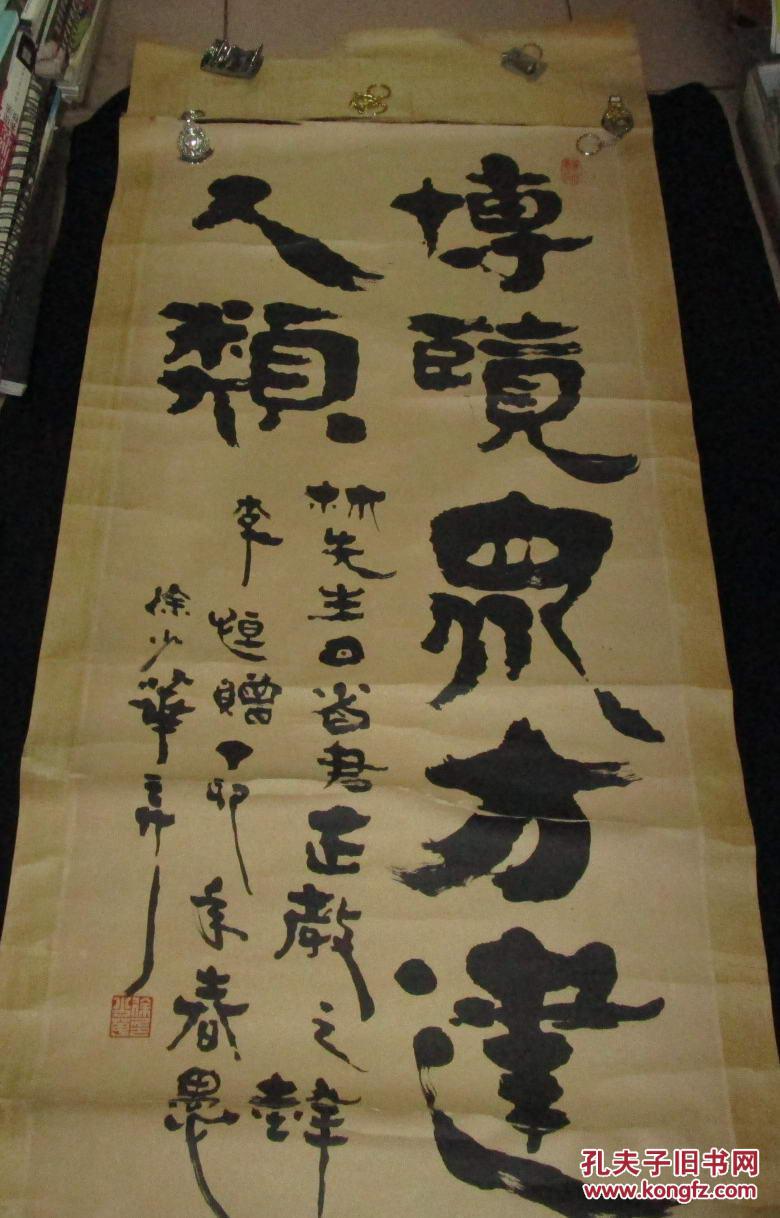 博覽眾方
類
林先生日省君正教之
李
恒贈丁卯年春愚
徐少華
孔夫子旧书网
www.kongfz.com